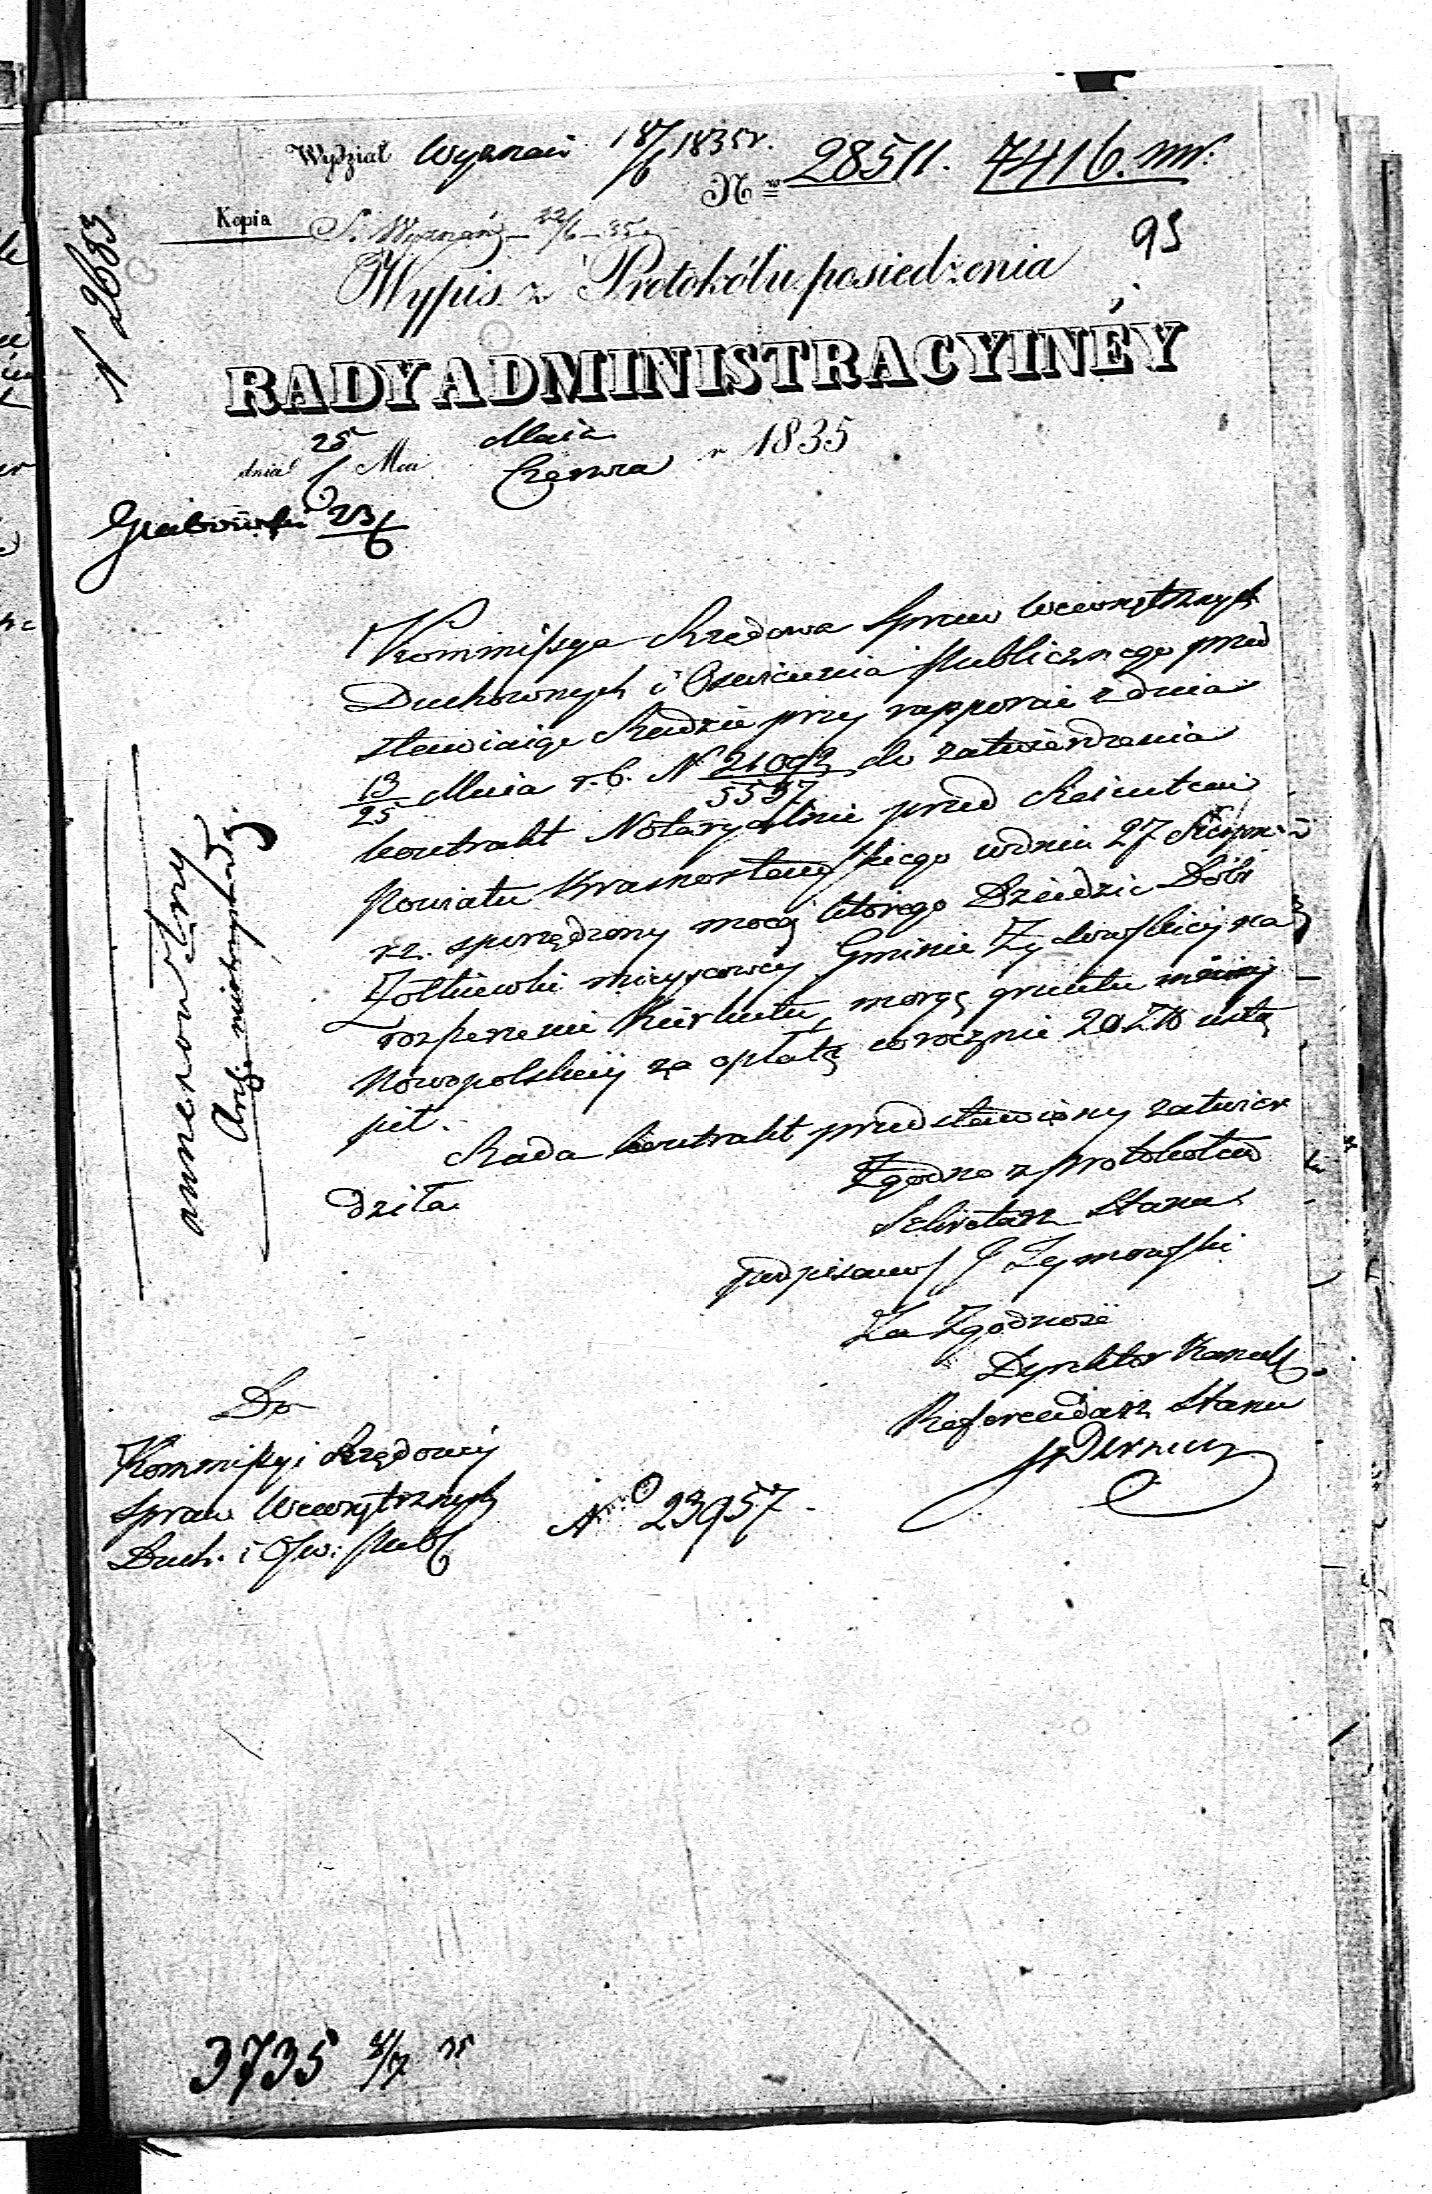 Wydział Wyznań 18/6 1835 r.
Nr 28511. 7416. nw:
Kopia S. Wyznań 22/6 35
95
N 2683
Wypis z Protokółu posiedzenia
RADY ADMINISTRACYINÉY
dnia 25/6 Mca Maia/Czerwca r 1835
23/6
Kommissya Rządowa Spraw Wewnętrznych
Duchownych i Oswicenia Publicznego przed
stawiaiąc Radzie przy rapporcie z dnia
13/25 Maia r. b. N 21092/5557 do zatwierdzenia
kontrakt Notaryalnie przed Reientem
Powiatu Krasnostawskiego w dniu 27 Sierpnia
r. z. sporządzony mocą którego Dziedzic Dóbr
Żółkiewki mieyscowey Gminie Żydowskiey na
rozszerzenie Kirkutu, morgę gruntu miary
Nowopolskiey za opłatą corocznie 20 Złp ustą
pił.
Rada kontrakt przedstawiony zatwier
dziła.
Zgodno z protokołem
Sekretarz Stanu
podpisano J Tymowski
Za Zgodność
Dyrektor Kancell
Referendarz Stanu
Do
Kommissyi Rządowey
Spraw Wewnętrznych
Duch. i Ośw: Publ
Nro 23957.
3735 4/7 35